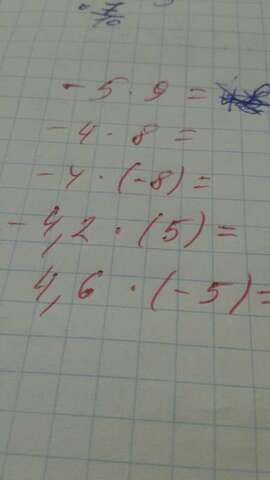 - 5 · 9 =
- 4 · 8 =
- 4 · (-8) =
- 4,2 · (5) =
4,6 · (-5) =